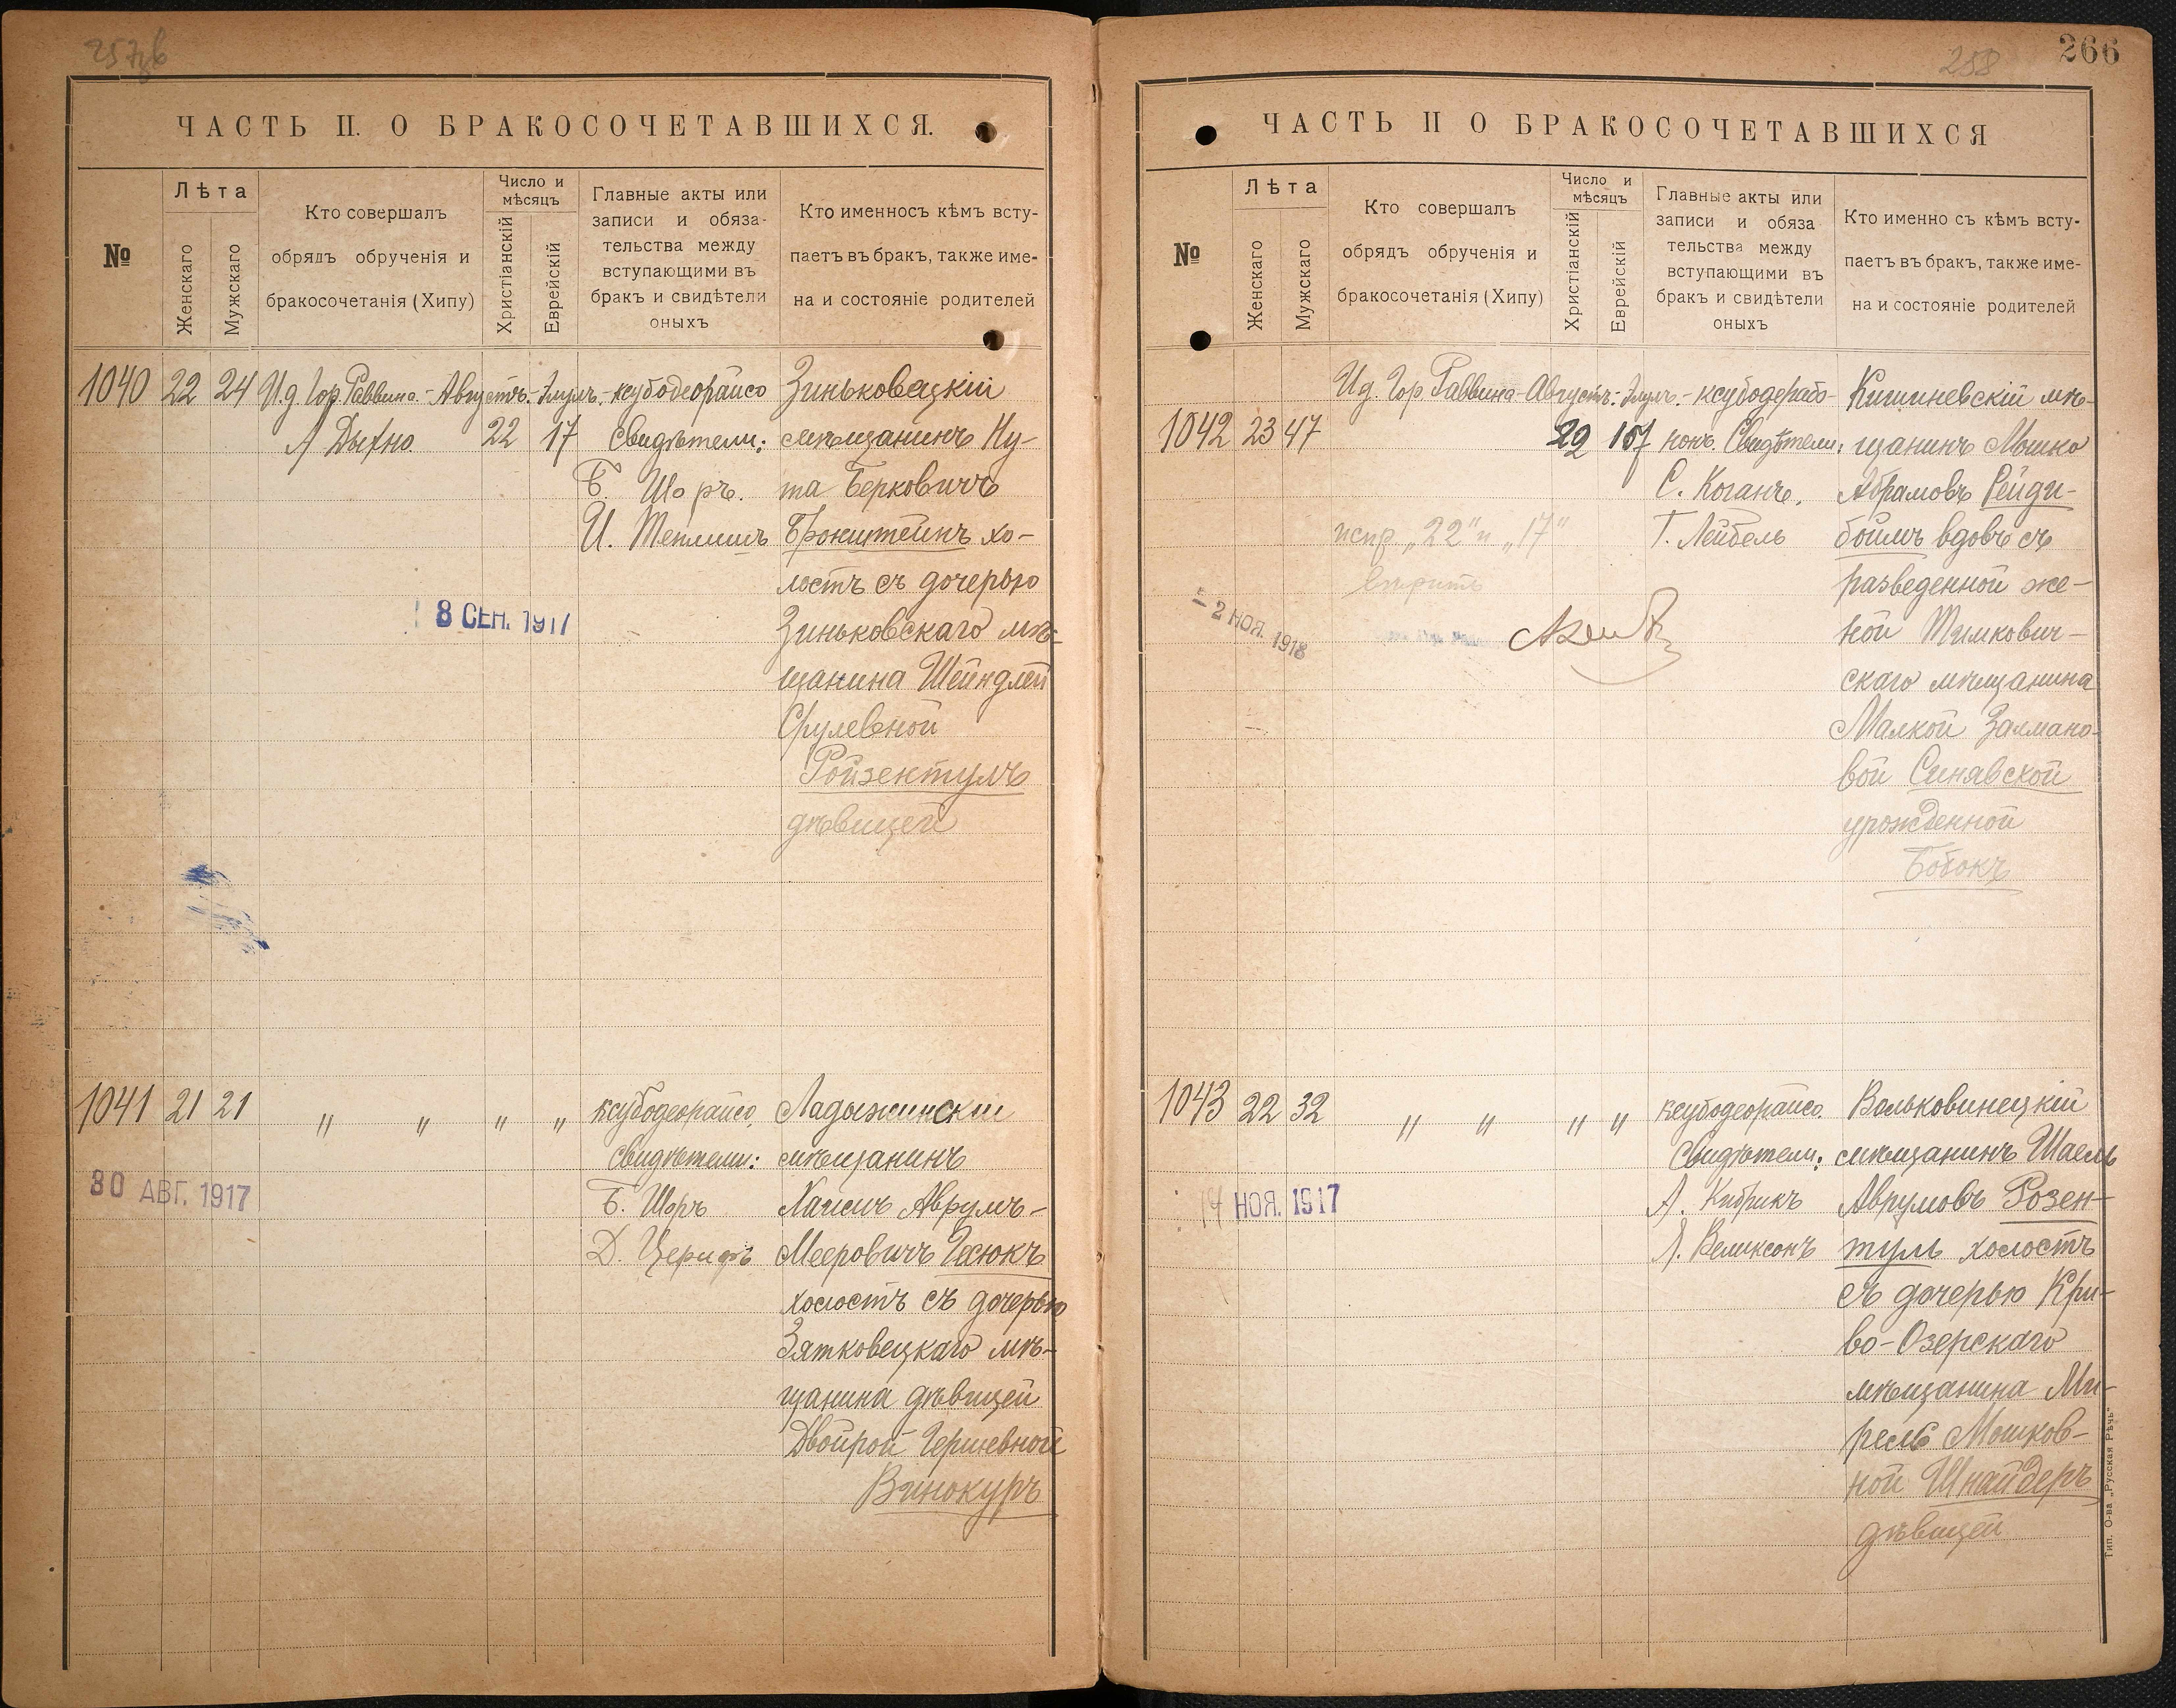 257об
ЧАСТЬ II. О БРАКОСОЧЕТАВШИХСЯ.
№
Лѣта
Женскаго
Мужскаго
Кто совершалъ
обрядъ обрученія и
бракосочетанія (Хипу)
Число и
мѣсяцъ
Христіанскій
Еврейскій
Главные акты или
записи и обяза-
тельства между
вступающими въ
бракъ и свидѣтели
оныхъ
Кто именносъ кѣмъ всту-
паетъ въ бракъ, также име-
на и состояніе родителей
1040 22 24 И.д. Гор. Раввина - Августъ. Элулъ. - ксубодеорайсо
А Дыхно. 22 17 Свидѣтели:
Б. Шоръ.
И. Теплицъ
Зиньковецкій
мѣщанинъ Ну-
та Берковичъ
Бронштейнъ хо-
лостъ съ дочерью
Зиньковскаго мѣ-
щанина Шейндлей
Срулевной
Ройзентулъ
дѣвицей
8 СЕН. 1917
1041 21 21 " " " " ксубодеорайсо.
Свидѣтели:
Б. Шоръ
Д.
Ладыжинскій
мѣщанинъ
Хаимъ Аврумъ-
Мееровичъ Гесюкъ
холостъ съ дочерью
Зятковецкаго мѣ-
щанина дѣвицей
Двойрой Гершевной
Винокуръ
30 АВГ. 1917
258
266
ЧАСТЬ II О БРАКОСОЧЕТАВШИХСЯ
№
Лѣта
Женскаго
Мужскаго
Кто совершалъ
обрядъ обрученія и
бракосочетанія (Хипу)
Число и
мѣсяцъ
Христіанскій
Еврейскій
Главные акты или
записи и обяза
тельства между
вступающими въ
бракъ и свидѣтели
оныхъ
Кто именно съ кѣмъ всту-
паетъ въ бракъ, также име-
на и состояніе родителей
И.д. Гор. Раввина - Августъ: Элулъ. - ксубодерабо-
1042 23 47 нонъ. Свидѣтели:
С. Коганъ.
Г. Лейбель
Кишиневскій мѣ-
щанинъ Мошко
Абрамовъ Рейди-
боймъ вдовъ съ
разведенной же-
ной Тимкович-
скаго мѣщанина
Малкой Залмано-
вой Синявской
урожденной
Бобокъ
испр „22" и „17"
вѣрить
2 НОЯ. 1918
1043 22 32 " " " " ксубодеорайсо.
Свидѣтели:
А. Кибрикъ
Я. Великсонъ
Вольковинецкій
мѣщанинъ Шаель
Аврумовъ Розен-
тулъ холостъ
съ дочерью Кри-
во-Озерскаго
мѣщанина Ми-
рель Мошков-
ной Шнайдеръ
дѣвицей
14 НОЯ. 1917
Тип. О-ва „Русская Рѣчь"